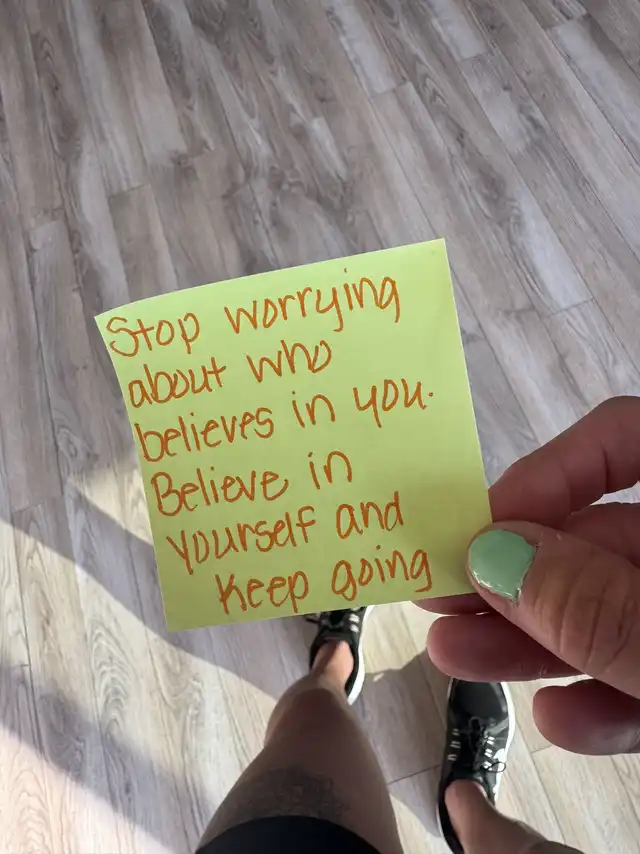 Stop worrying
about who
believes in you.
Believe in
yourself and
Keep going